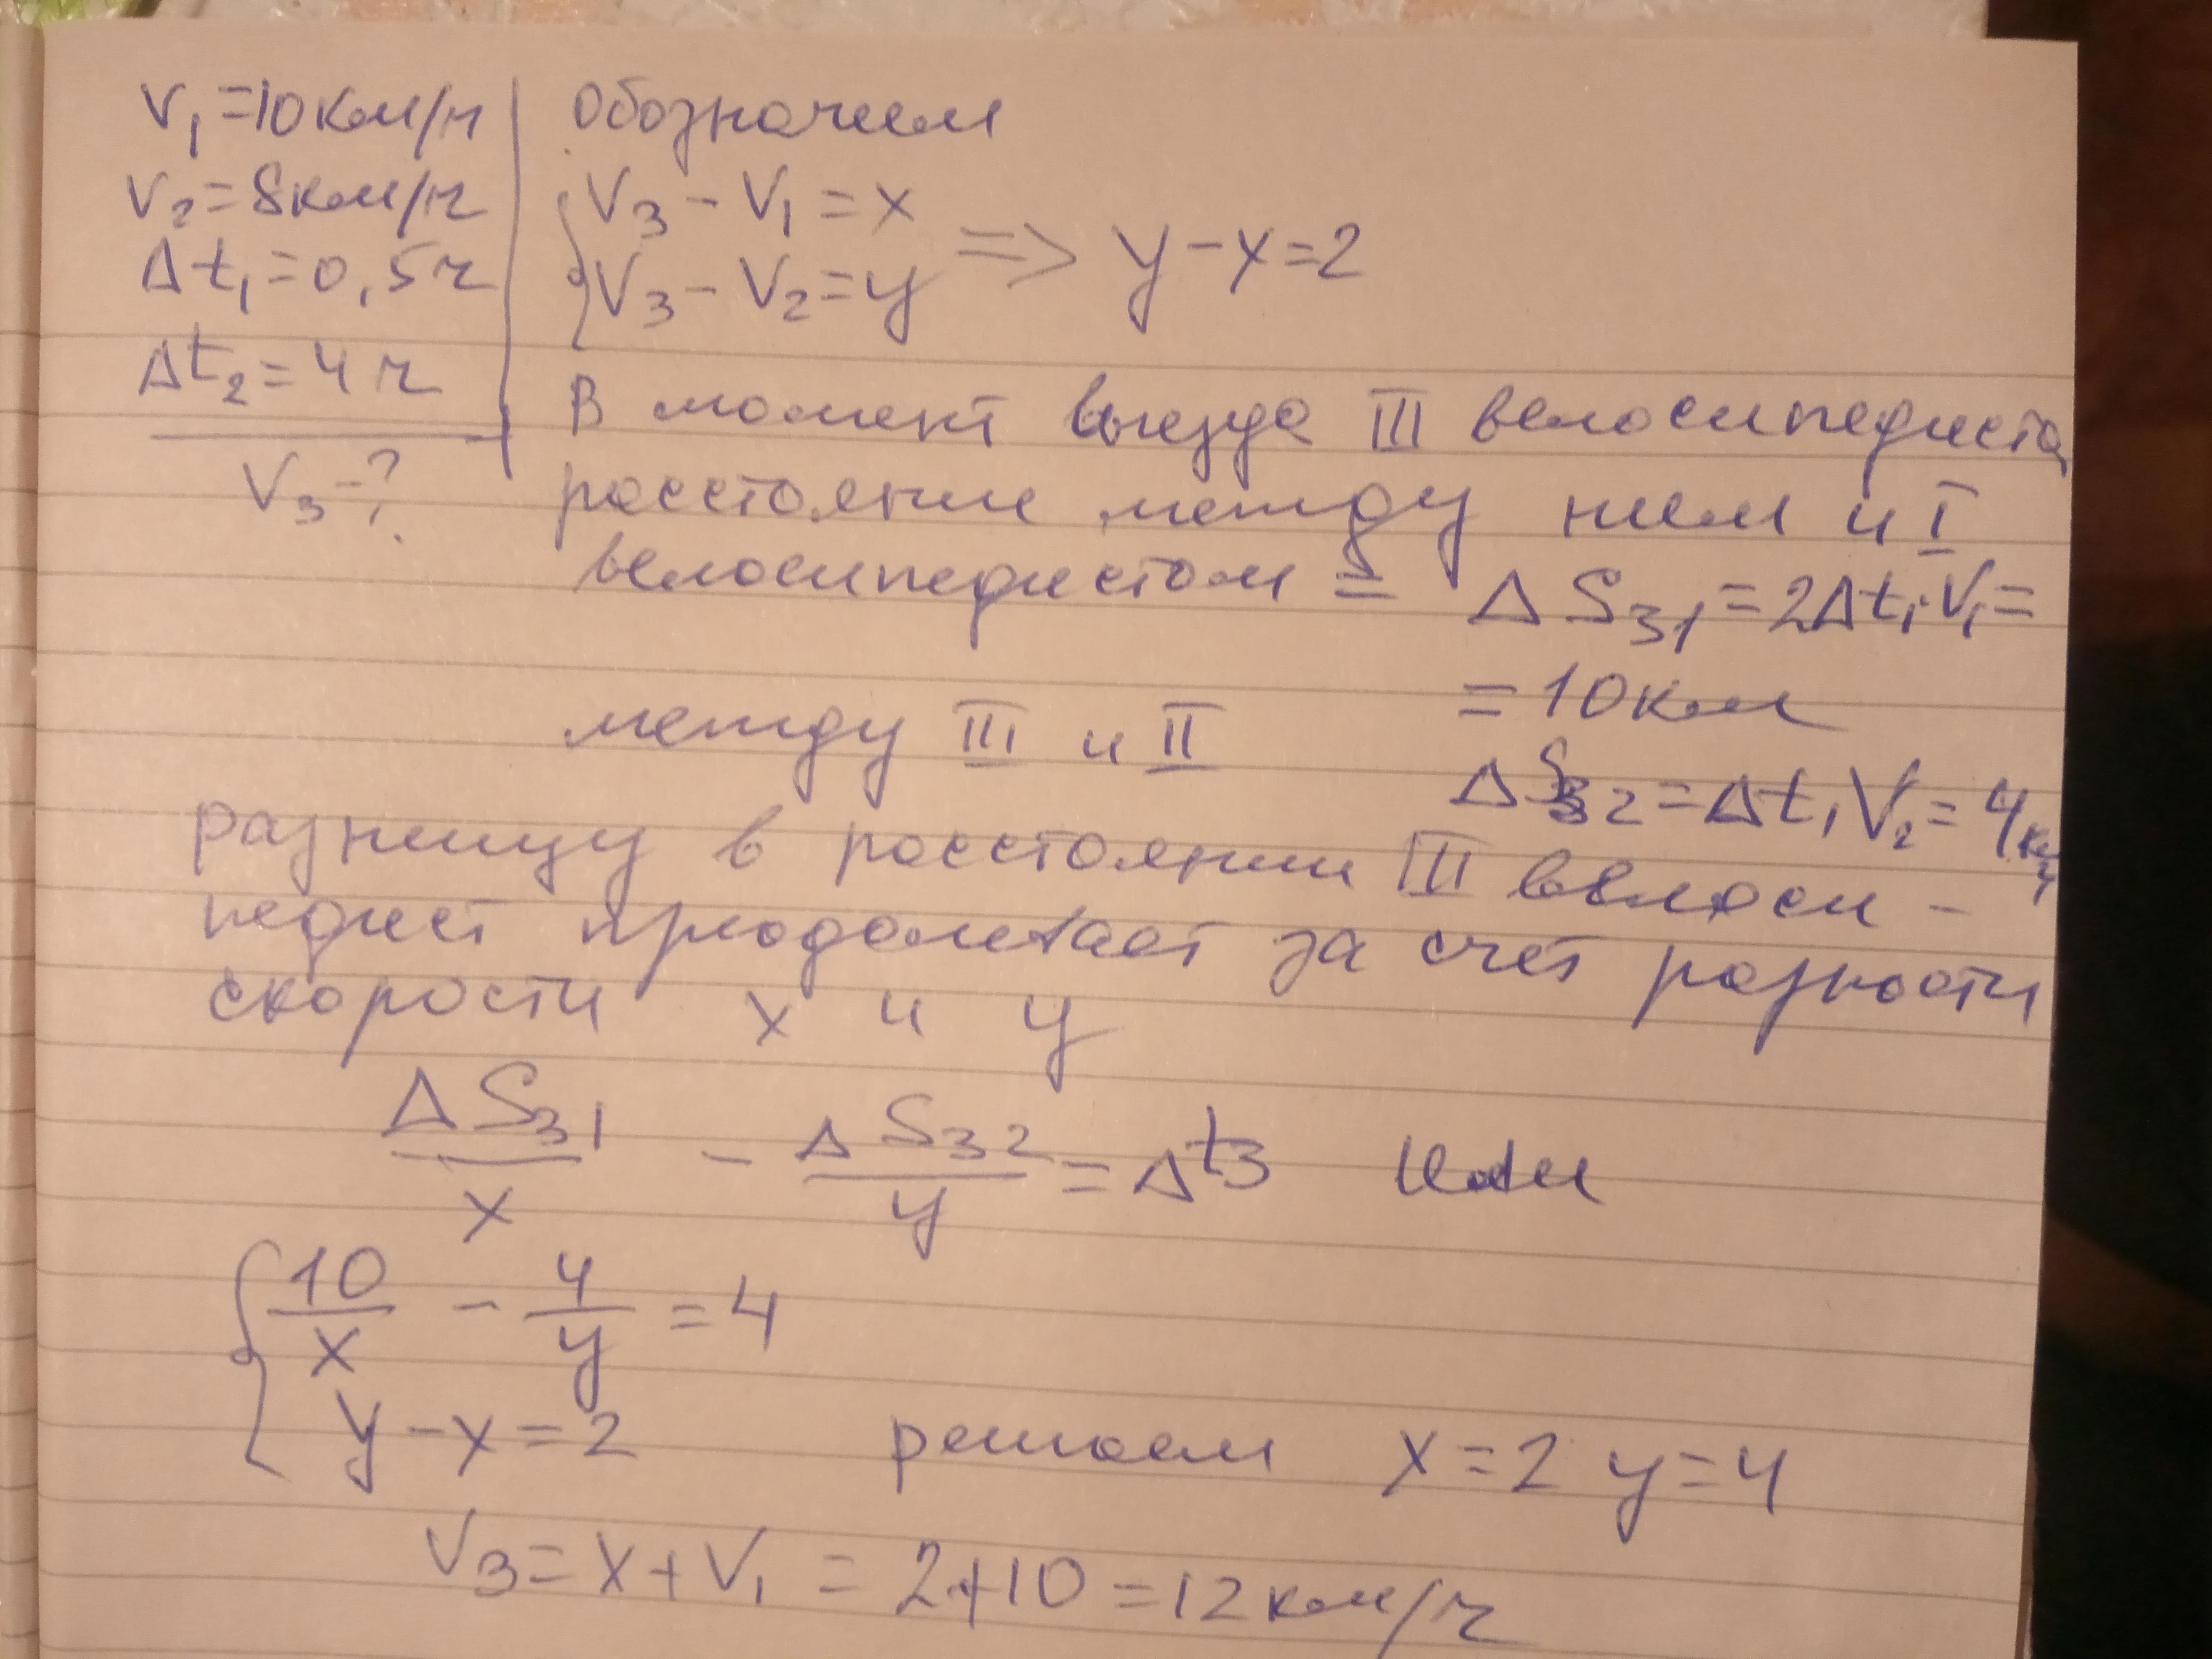 V₁=10км/ч
V₂=8км/ч
Δt₁=0,5ч
Δt₂=4ч
V₃-?
Обозначим
V₃-V₁=x
V₃-V₂=y => y-x=2
В момент выезда III велосипедиста
расстояние между ним и I
велосипедистом = ΔS₃₁=2Δt₁·V₁=
=10км
между III и II ΔS₃₂=Δt₁V₂=4км
разницу в расстоянии III велоси-
педист преодолевает за счёт разности
скорости x и y
ΔS₃₁/x - ΔS₃₂/y = Δt₃ или
10/x - 4/y = 4
y-x=2 решаем x=2 y=4
V₃=x+V₁=2+10=12км/ч